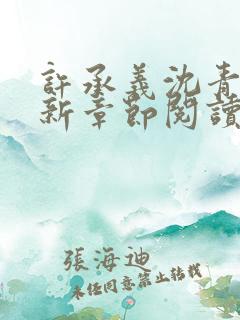 許承義沈青
新章節閱讀
張海迪
未经同意禁止转载